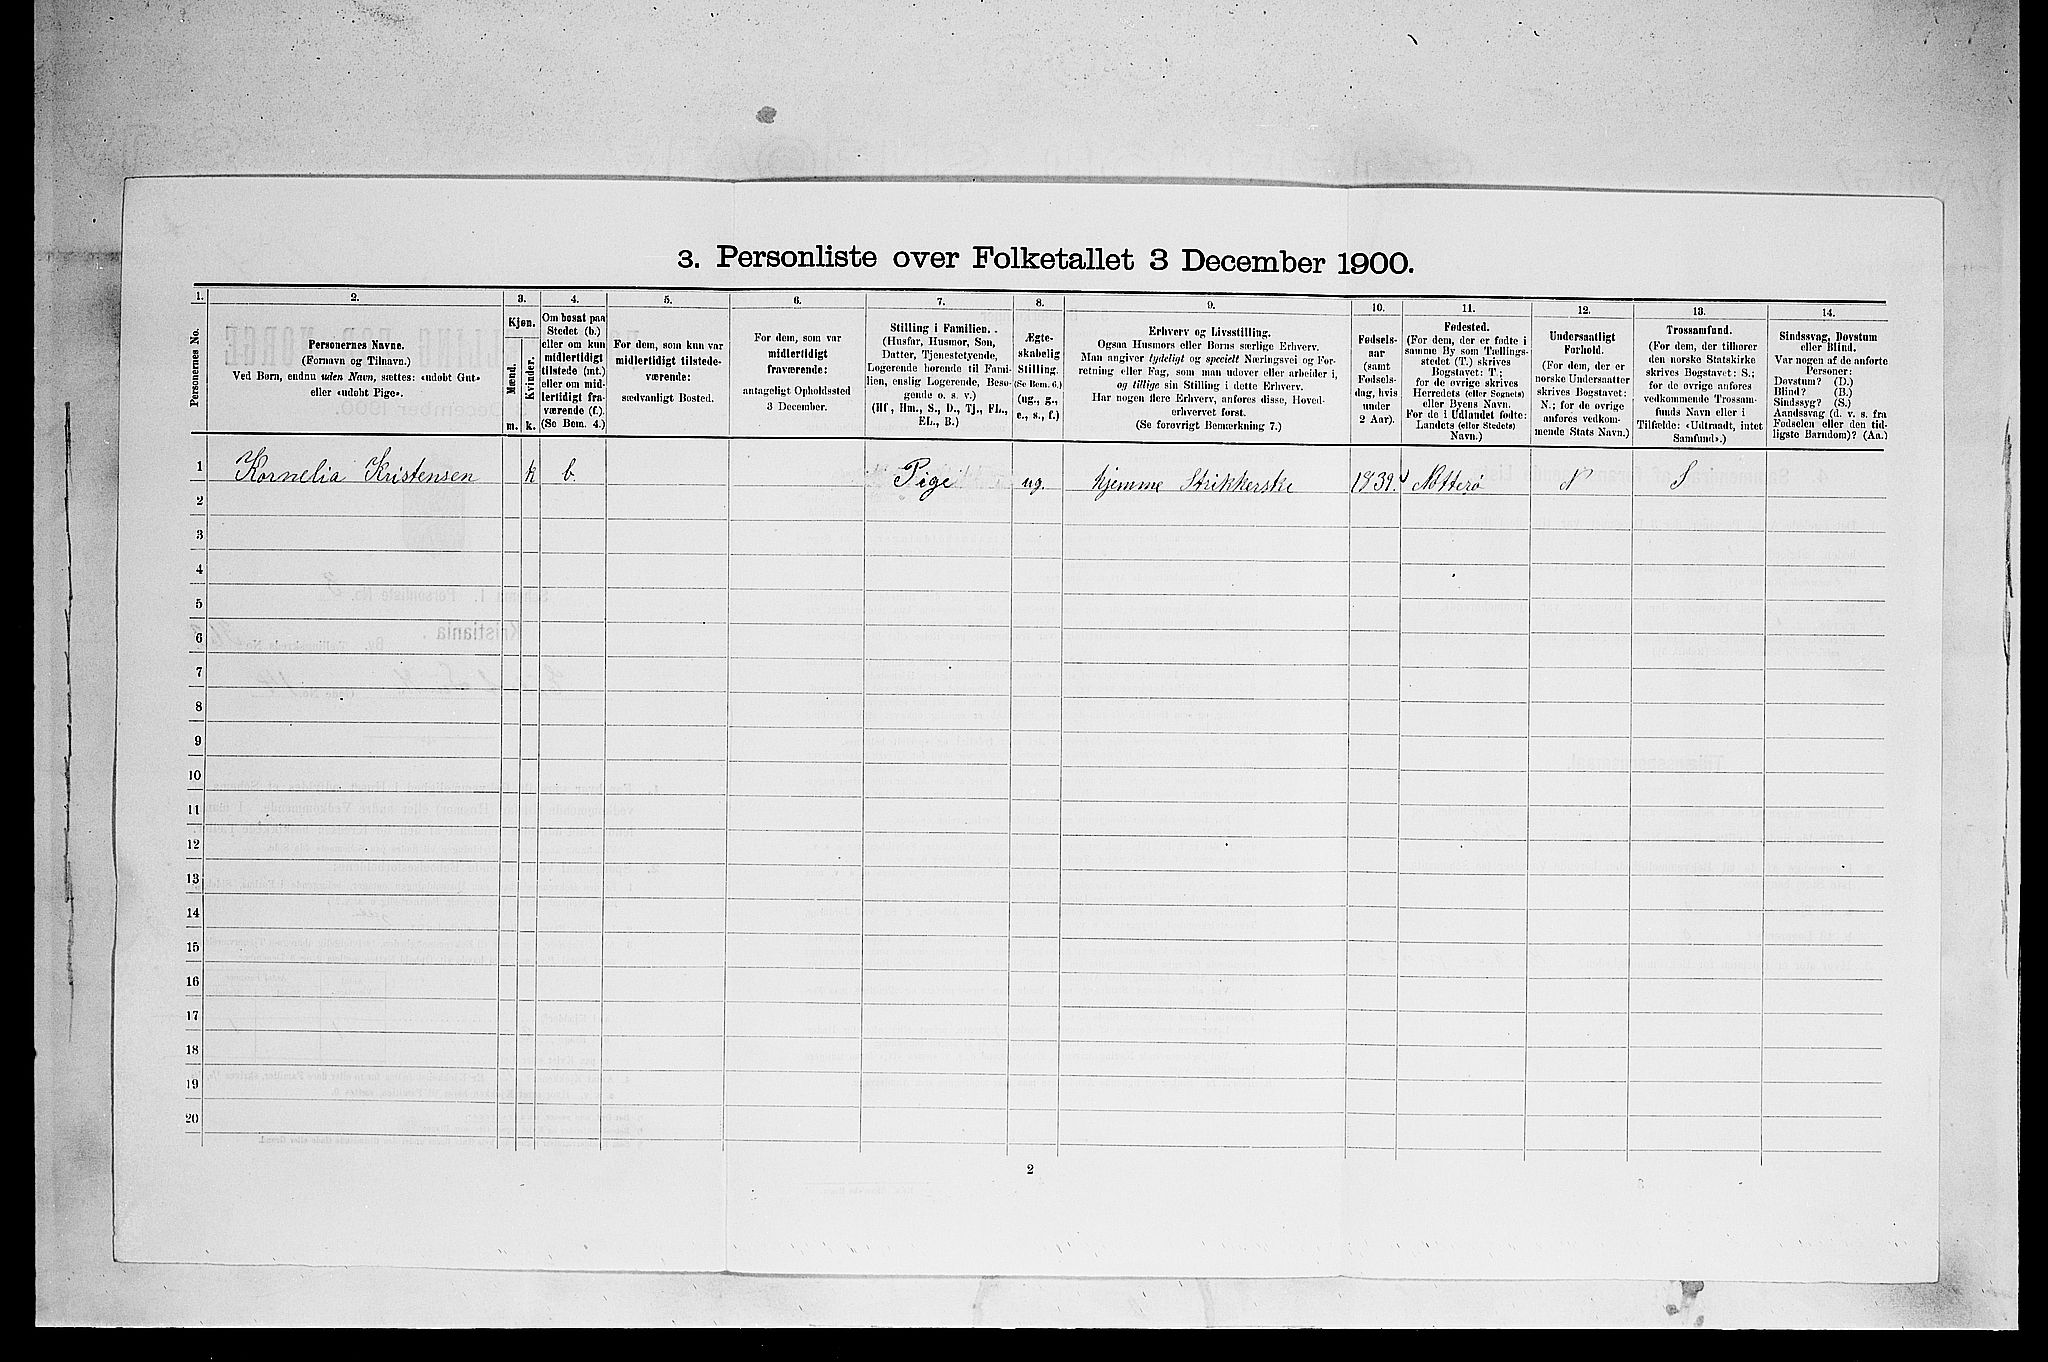 3. Personliste over Folketallet 3 December 1900.
1.
Personernes No.
2.
Personernes Navne.
(Fornavn og Tilnavn.)
Ved Børn, endnu uden Navn, sættes: «udøbt Gut»
eller «udøbt Pige».
3.
Kjøn.
Mænd.
Kvinder.
m.
k.
4.
Om bosat paa
Stedet (b.)
eller om kun
midlertidigt
tilstede (mt.)
eller om mid-
lertidigt fra-
værende (f.).
(Se Bem. 4.)
5.
For dem, som kun var
midlertidigt tilstede-
værende:
sædvanligt Bosted.
6.
For dem, som var
midlertidigt
fraværende:
antageligt Opholdssted
3 December.
7.
Stilling i Familien.
(Husfar, Husmor, Søn,
Datter, Tjenestetyende,
Logerende hørende til Fami-
lien, enslig Logerende, Besø-
gende o. s. v.)
(Hf, Hm., S., D., Tj., FL.,
EL., B.)
8.
Ægte-
skabelig
Stilling.
(Se Bem. 6.)
(ug., g.,
e., s., f.)
9.
Erhverv og Livsstilling.
Ogsaa Husmors eller Børns særlige Erhverv.
Man angiver tydeligt og specielt Næringsvei og For-
retning eller Fag, som man udøver eller arbeider i,
og tillige sin Stilling i dette Erhverv.
Har nogen flere Erhverv, anføres disse, Hoved-
erhvervet først.
(Se forøvrigt Bemærkning 7.)
10.
Fødsels-
aar
(samt
Fødsels-
dag, hvis
under
2 Aar).
11.
Fødested.
(For dem, der er fødte i
samme By som Tællings-
stedet (T.) skrives
Bogstavet: T.;
for de øvrige skrives
Herredets (eller Sognets)
eller Byens Navn.
For de i Udlandet fødte:
Landets (eller Stedets)
Navn.)
12.
Undersaatligt
Forhold.
(For dem, der er
norske Undersaatter
skrives Bogstavet:
N.; for de øvrige
anføres vedkom-
mende Stats Navn.)
13.
Trossamfund.
(For dem, der tilhører
den norske Statskirke
skrives Bogstavet: S.;
for de øvrige anføres
vedkommende Trossam-
funds Navn eller i
Tilfælde: «Udtraadt, intet
Samfund».)
14.
Sindssvag, Døvstum
eller Blind.
Var nogen af de anførte
Personer:
Døvstum? (D.)
Blind? (B.)
Sindssyg? (S.)
Aandssvag (d. v. s. fra
Fødselen eller den tid-
ligste Barndom)? (Aa.)
1 Kornelia Kristensen k b. Pige ug. hjemme Strikkerske 1839. Nøtterø N S
2
3
4
5
6
7
8
9
10
11
12
13
14
15
16
17
18
19
20
2